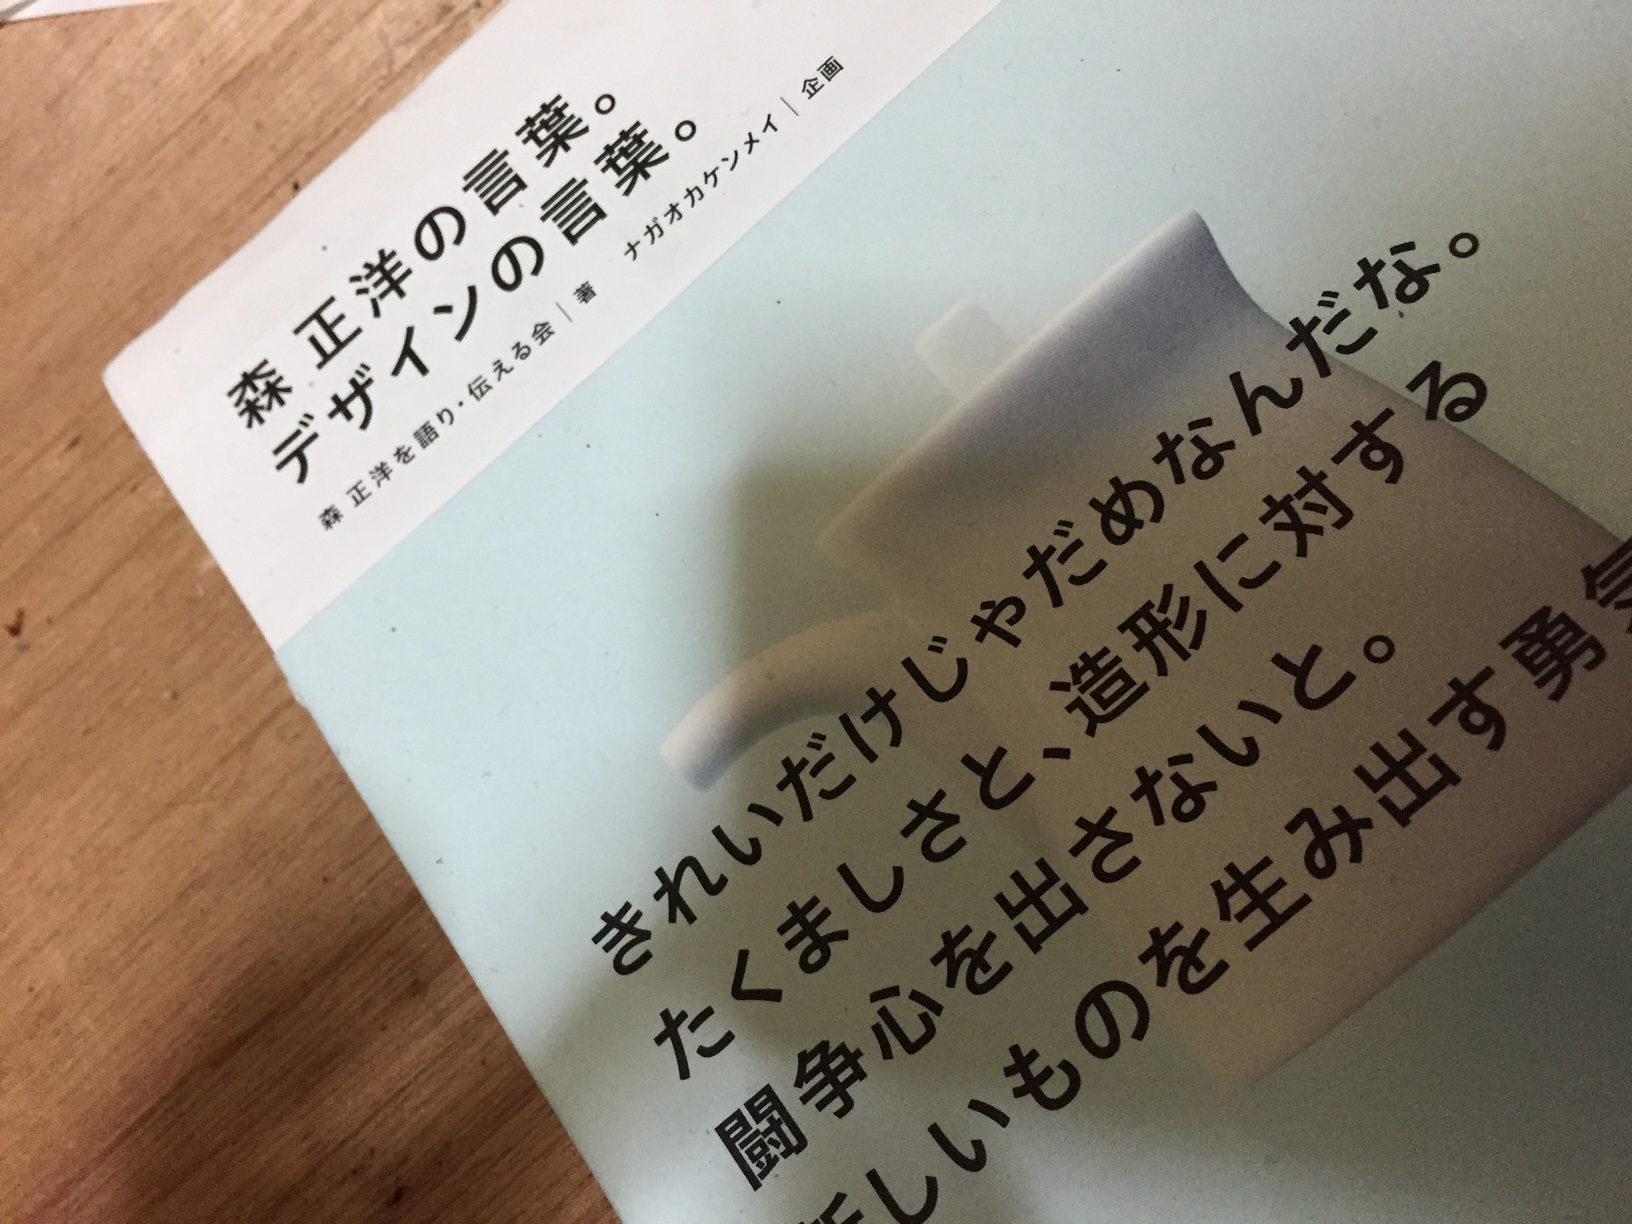 森 正洋の言葉。
デザインの言葉。
森 正洋を語り・伝える会｜著　ナガオカケンメイ｜企画
きれいだけじゃだめなんだな。
たくましさと、造形に対する
闘争心を出さないと。
新しいものを生み出す勇気